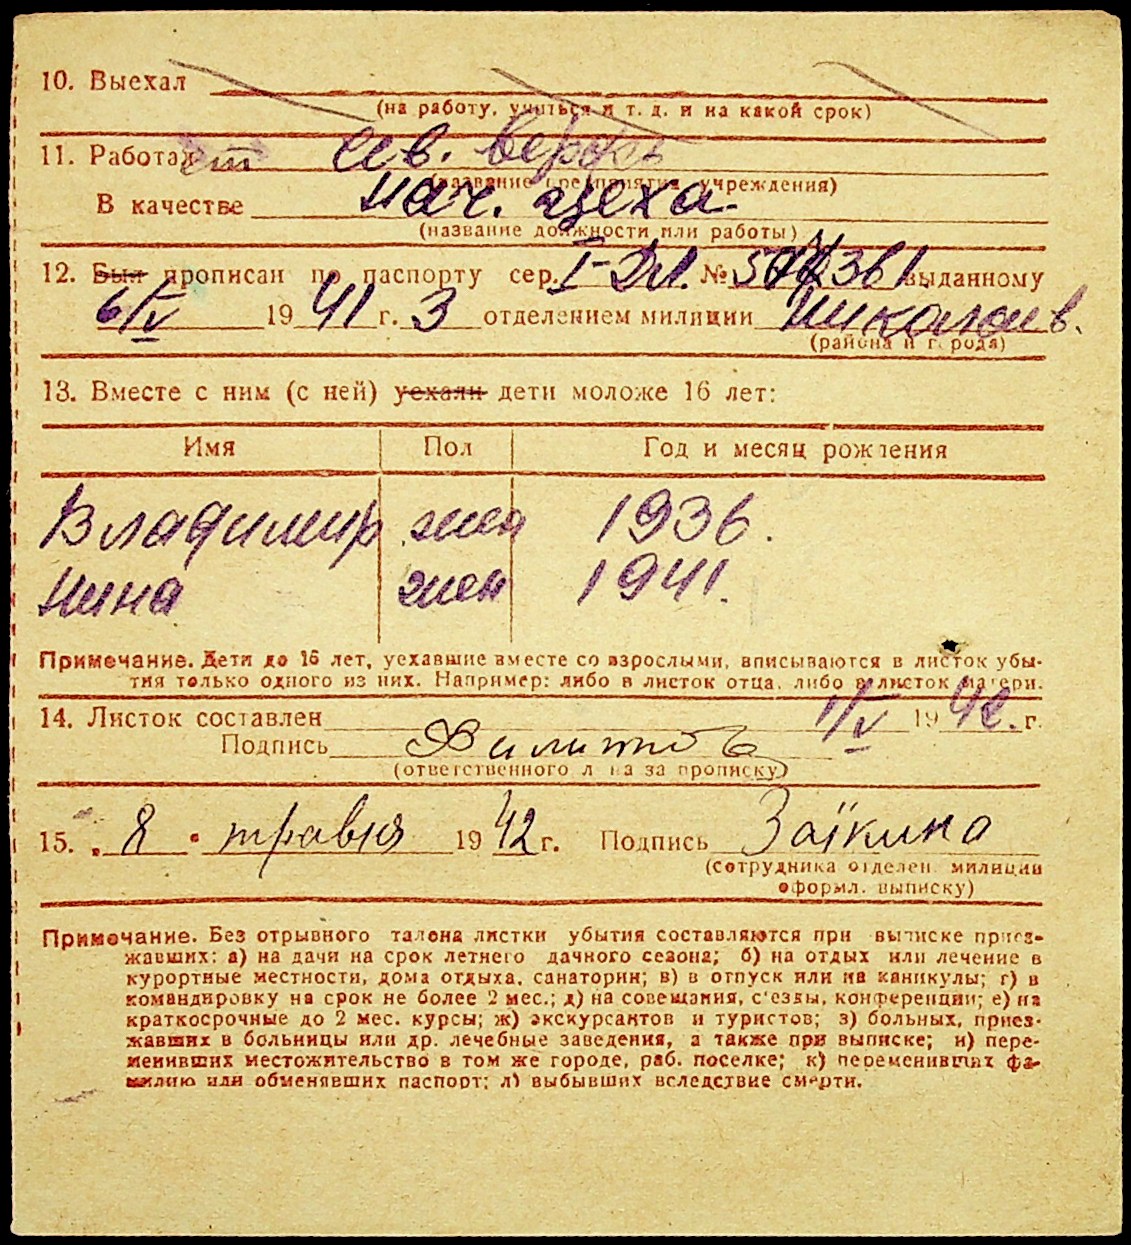 10. Выехал
(на работу, учиться и т. д. и на какой срок)
11. Работает Сев. верфь
(название предприятия, учреждения)
В качестве нач. цеха
(название должности или работы)
12. Был прописан по паспорту сер. № выданному
6/V 1941 г. 3 отделением милиции Николаев.
(района и города)
13. Вместе с ним (с ней) уехали дети моложе 16 лет:
Имя Пол Год и месяц рождения
Владимир жен 1936.
Нина жен 1941.
Примечание. Дети до 16 лет, уехавшие вместе со взрослыми, вписываются в листок убы-
тия только одного из них. Например: либо в листок отца, либо в листок матери.
14. Листок составлен 1/V 1942. г.
Подпись Филиппов
(ответственного лица за прописку)
15. „ 8 " травня 1942 г. Подпись Заїкина
(сотрудника отделен. милиции
оформл. выписку)
Примечание. Без отрывного талона листки убытия составляются при выписке приез-
жавших: а) на дачи на срок летнего дачного сезона; б) на отдых или лечение в
курортные местности, дома отдыха, санатории; в) в отпуск или на каникулы; г) в
командировку на срок не более 2 мес.; д) на совещания, с'езды, конференции; е) на
краткосрочные до 2 мес. курсы; ж) экскурсантов и туристов; з) больных, приез-
жавших в больницы или др. лечебные заведения, а также при выписке; и) пере-
менивших местожительство в том же городе, раб. поселке; к) переменивших фа-
милию или обменявших паспорт; л) выбывших вследствие смерти.